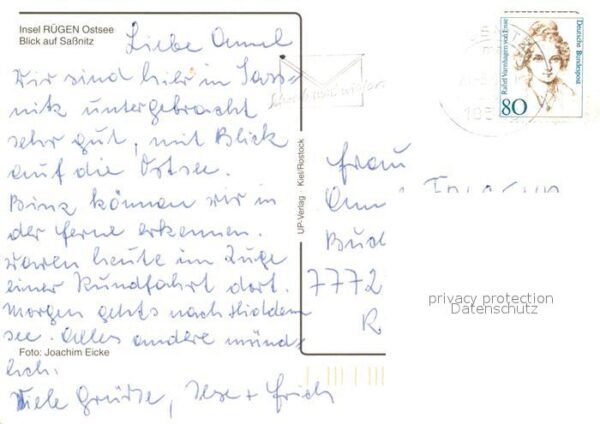 Insel RÜGEN Ostsee
Blick auf Saßnitz
Liebe
Wir sind hier in Sass-
nitz untergebracht
sehr gut, mit Blick
auf die Ostsee.
Binz können wir in
der Ferne erkennen.
Waren heute im Zuge
einer Rundfahrt dort.
Morgen gehts nach Hidden
see. Alles andere münd-
lich.
Viele Grüße, Ilse + Erich
Foto: Joachim Eicke
UP-Verlag Kiel/Rostock
Deutsche Bundespost
Rahel Varnhagen von Ense
80
Frau
7772
R
privacy protection
Datenschutz